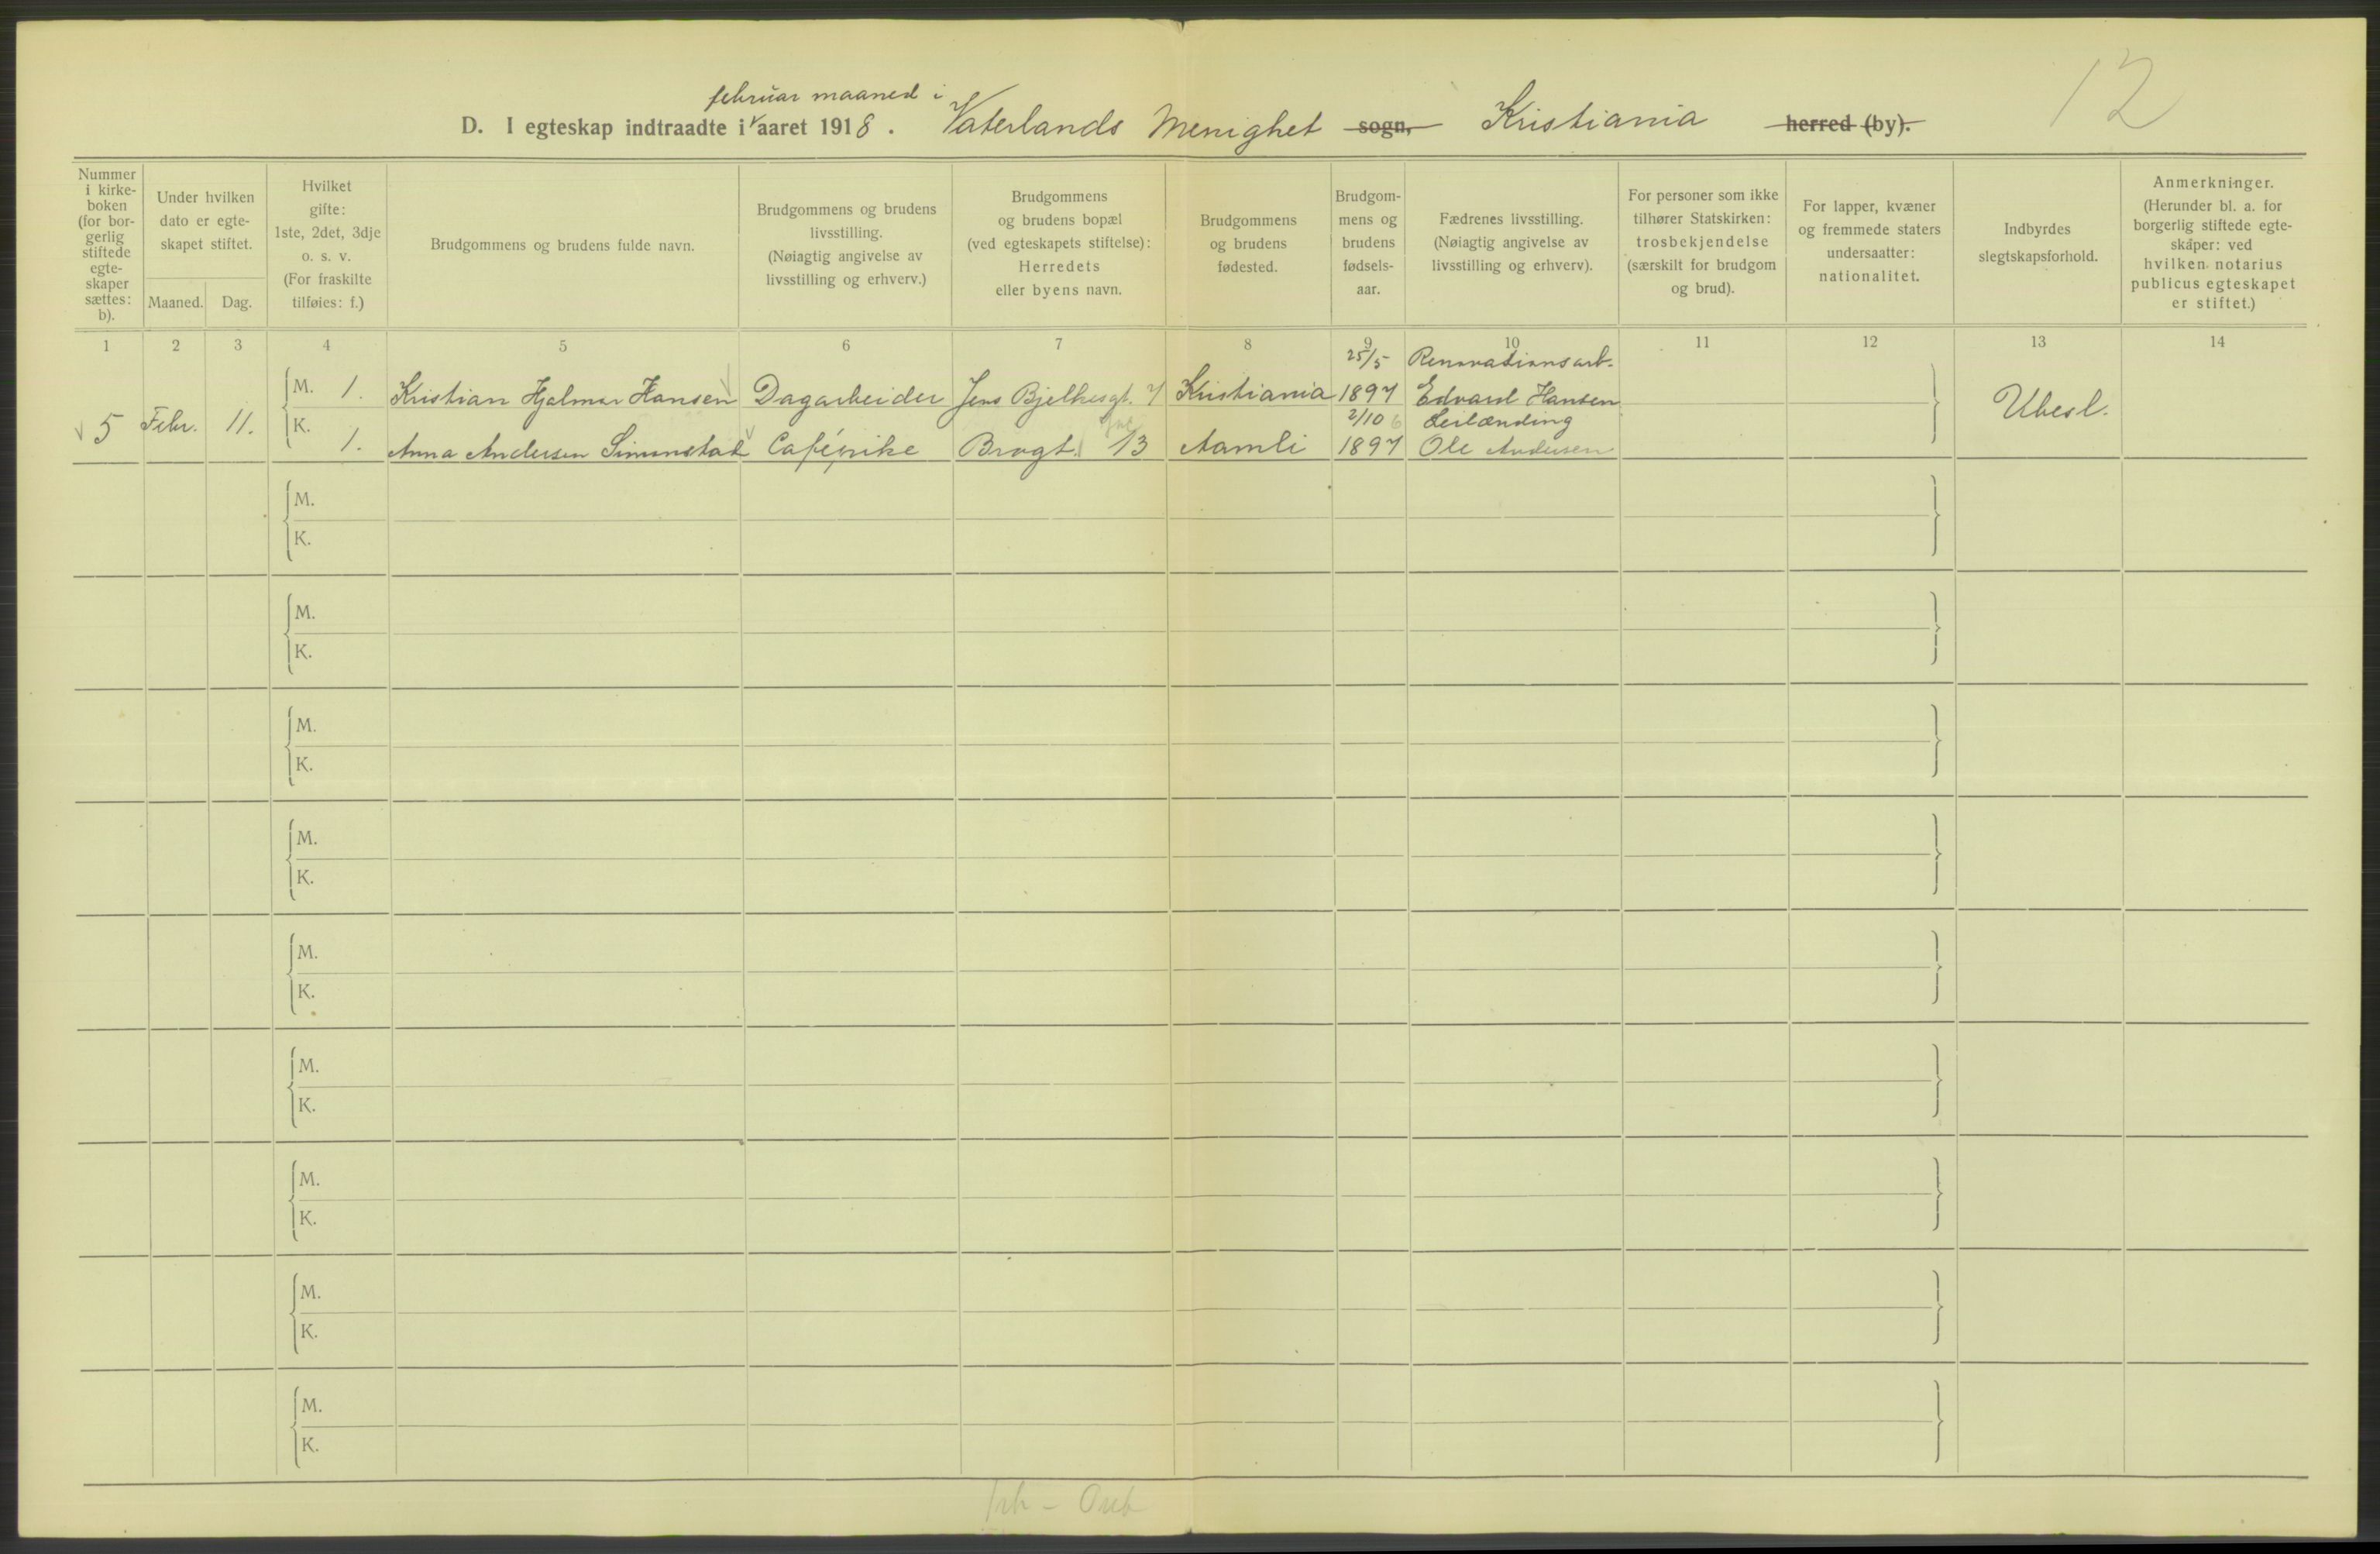 februar maaned i
12
D. I egteskap indtraadte i aaret 1918. Vaterlands Menighet sogn, Kristiania herred (by).
Nummer
i kirke-
boken
(for bor-
gerlig
stiftede
egte-
skaper
sættes:
b).
Under hvilken
dato er egte-
skapet stiftet.
Maaned. Dag.
Hvilket
gifte:
1ste, 2det, 3dje
o. s. v.
(For fraskilte
tilføies: f.)
Brudgommens og brudens fulde navn.
Brudgommens og brudens
livsstilling.
(Nøiagtig angivelse av
livsstilling og erhverv.)
Brudgommens
og brudens bopæl
(ved egteskapets stiftelse):
Herredets
eller byens navn.
Brudgommens
og brudens
fødested.
Brudgom-
mens og
brudens
fødsels-
aar.
Fædrenes livsstilling.
(Nøiagtig angivelse av
livsstilling og erhverv).
For personer som ikke
tilhører Statskirken:
trosbekjendelse
(særskilt for brudgom
og brud).
For lapper, kvæner
og fremmede staters
undersaatter:
nationalitet.
Indbyrdes
slegtskapsforhold.
Anmerkninger.
(Herunder bl. a. for
borgerlig stiftede egte-
skaper: ved
hvilken notarius
publicus egteskapet
er stiftet.)
1 2 3 4 5 6 7 8 9 10 11 12 13 14
25/5 Renovationsarb.
M. 1. Kristian Hjalmar Hansen Dagarbeider Jens Bjelkesgt. 7 Kristiania 1897 Edvard Hansen
5 Febr. 11. Ubesl.
2/10 6 Leilænding
K. 1. Anna Andersen Simonstad Cafépike Brogt. 13 Aamli 1897 Ole Andersen
M.
K.
M.
K.
M.
K.
M.
K.
M.
K.
M.
K.
M.
K.
M.
K.
M.
K.